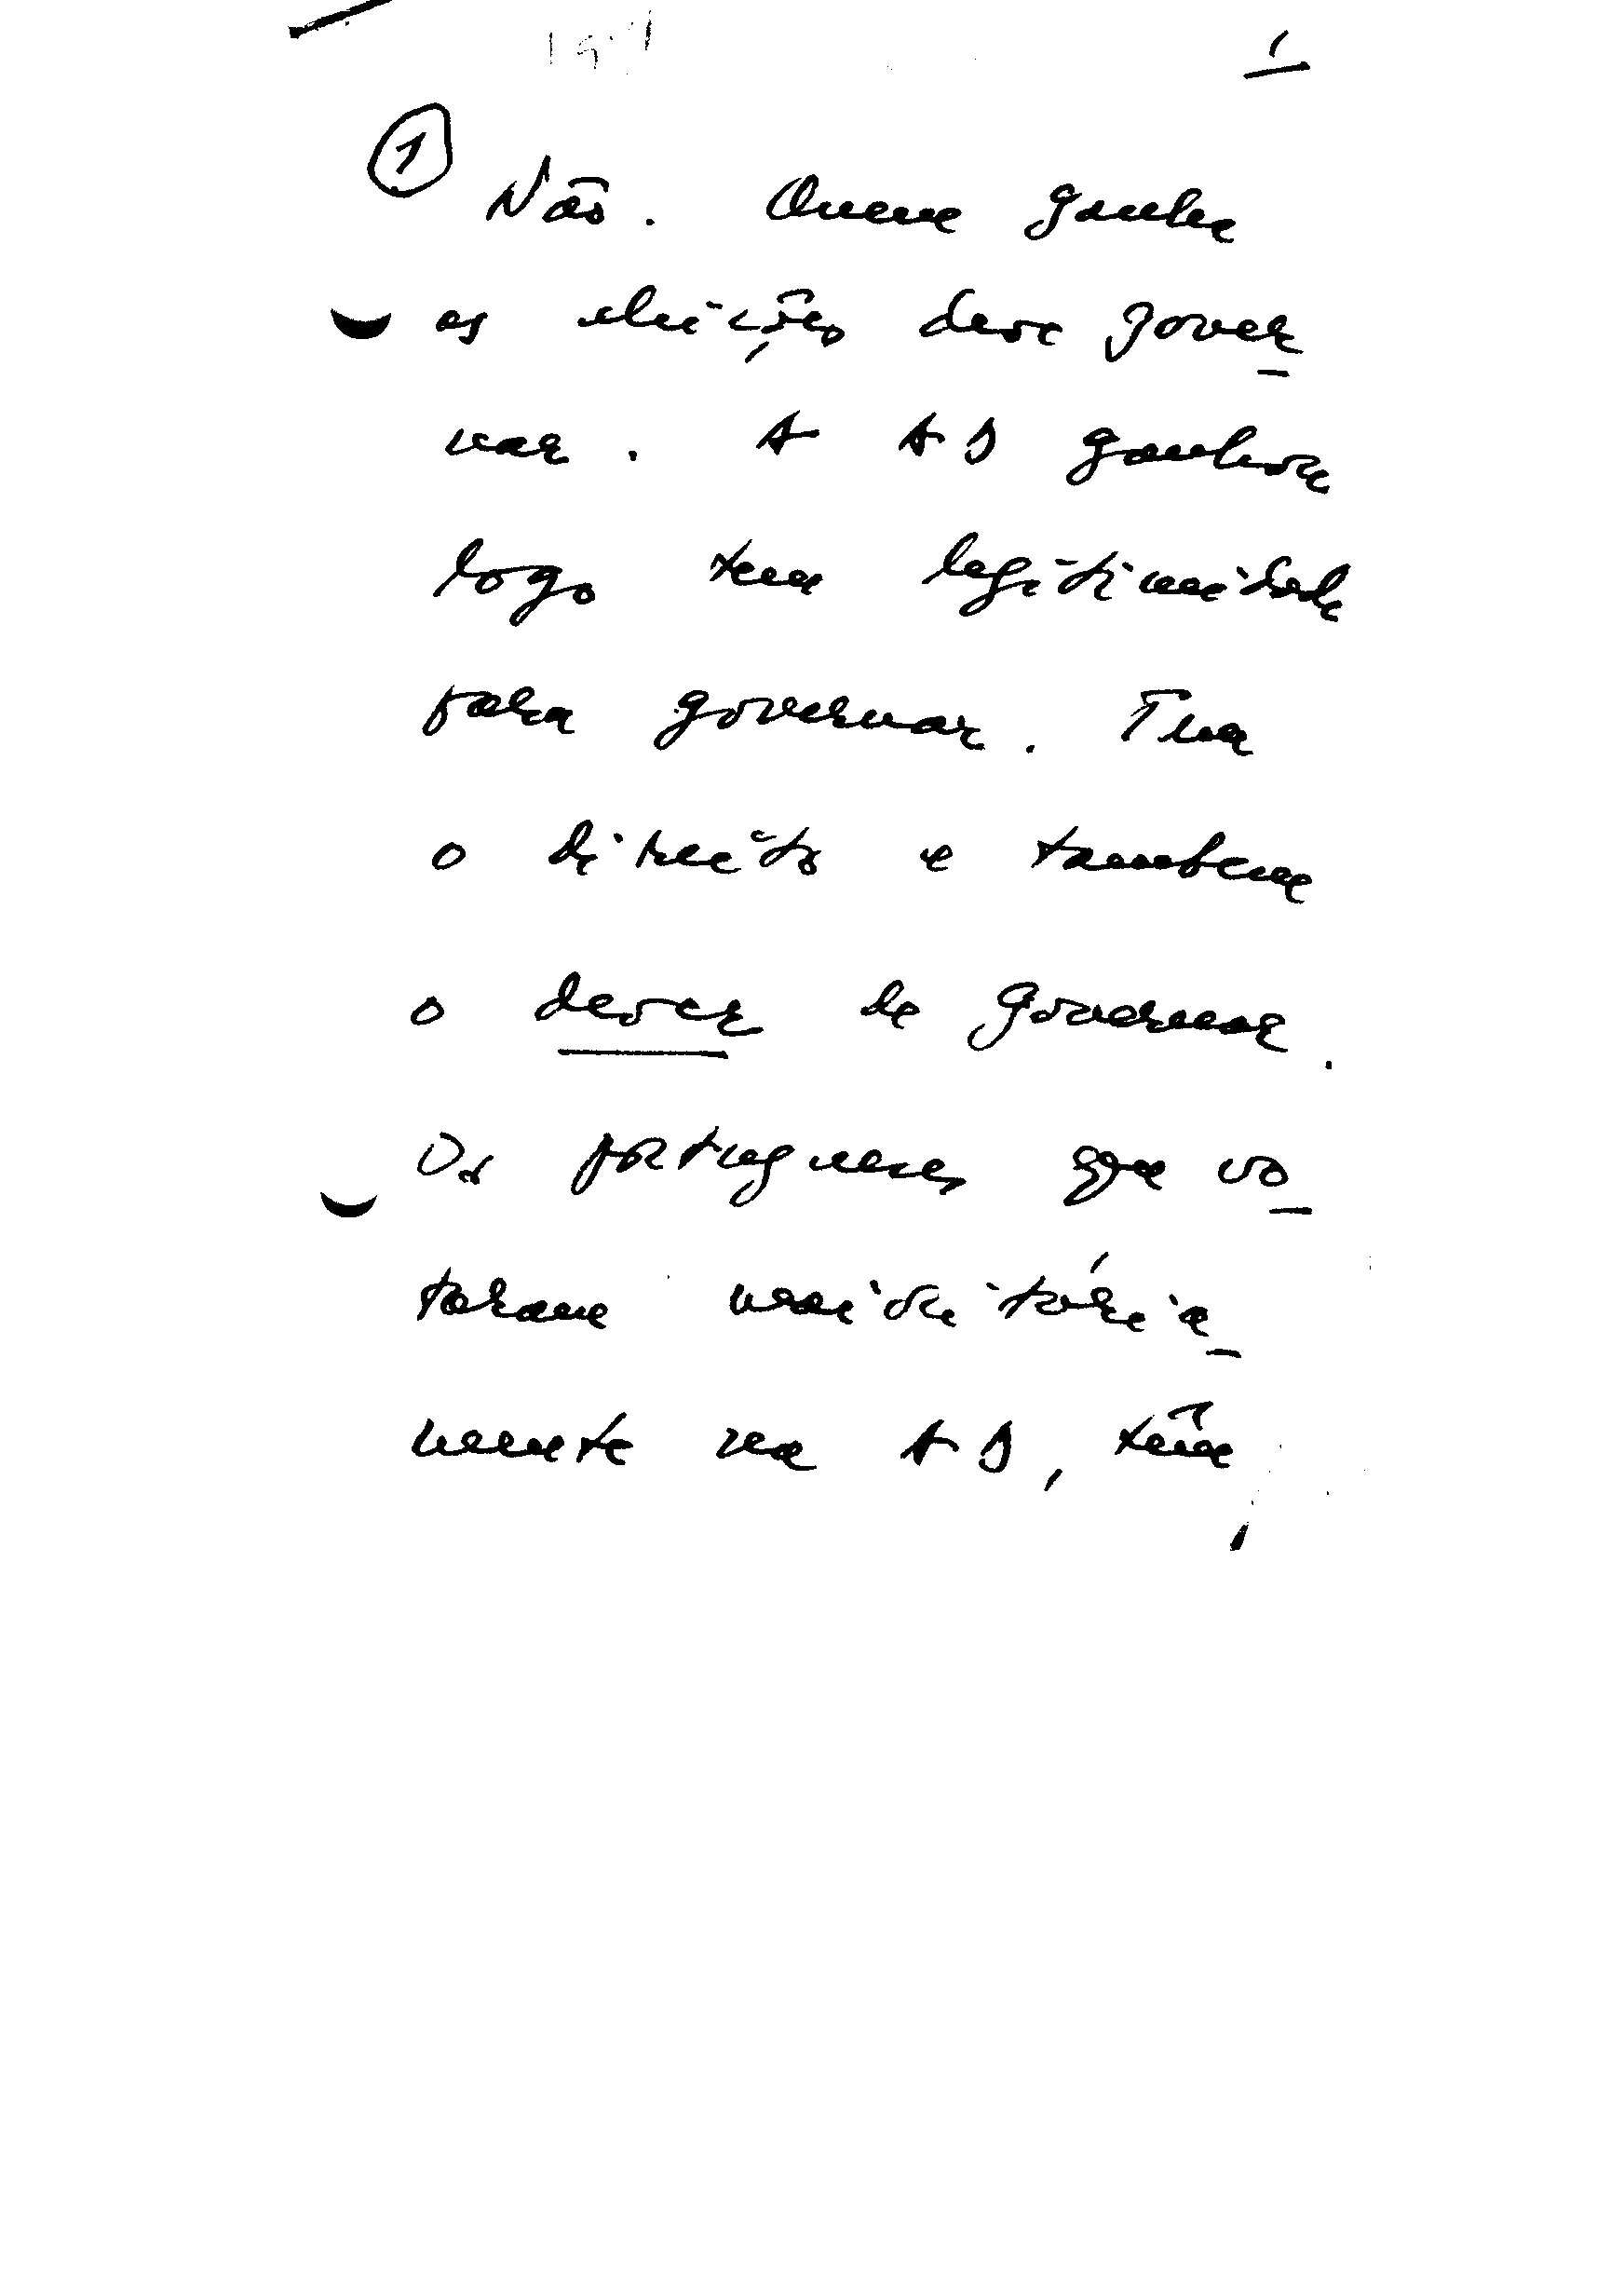 1
① Não. Quem ganha
as eleições deve gover
nar. A AD ganhou
logo tem legitimidade
para governar. Tem
o direito e tambem
o dever de governar.
Os portugueses que vo
taram maioritária
mente na AD, têm